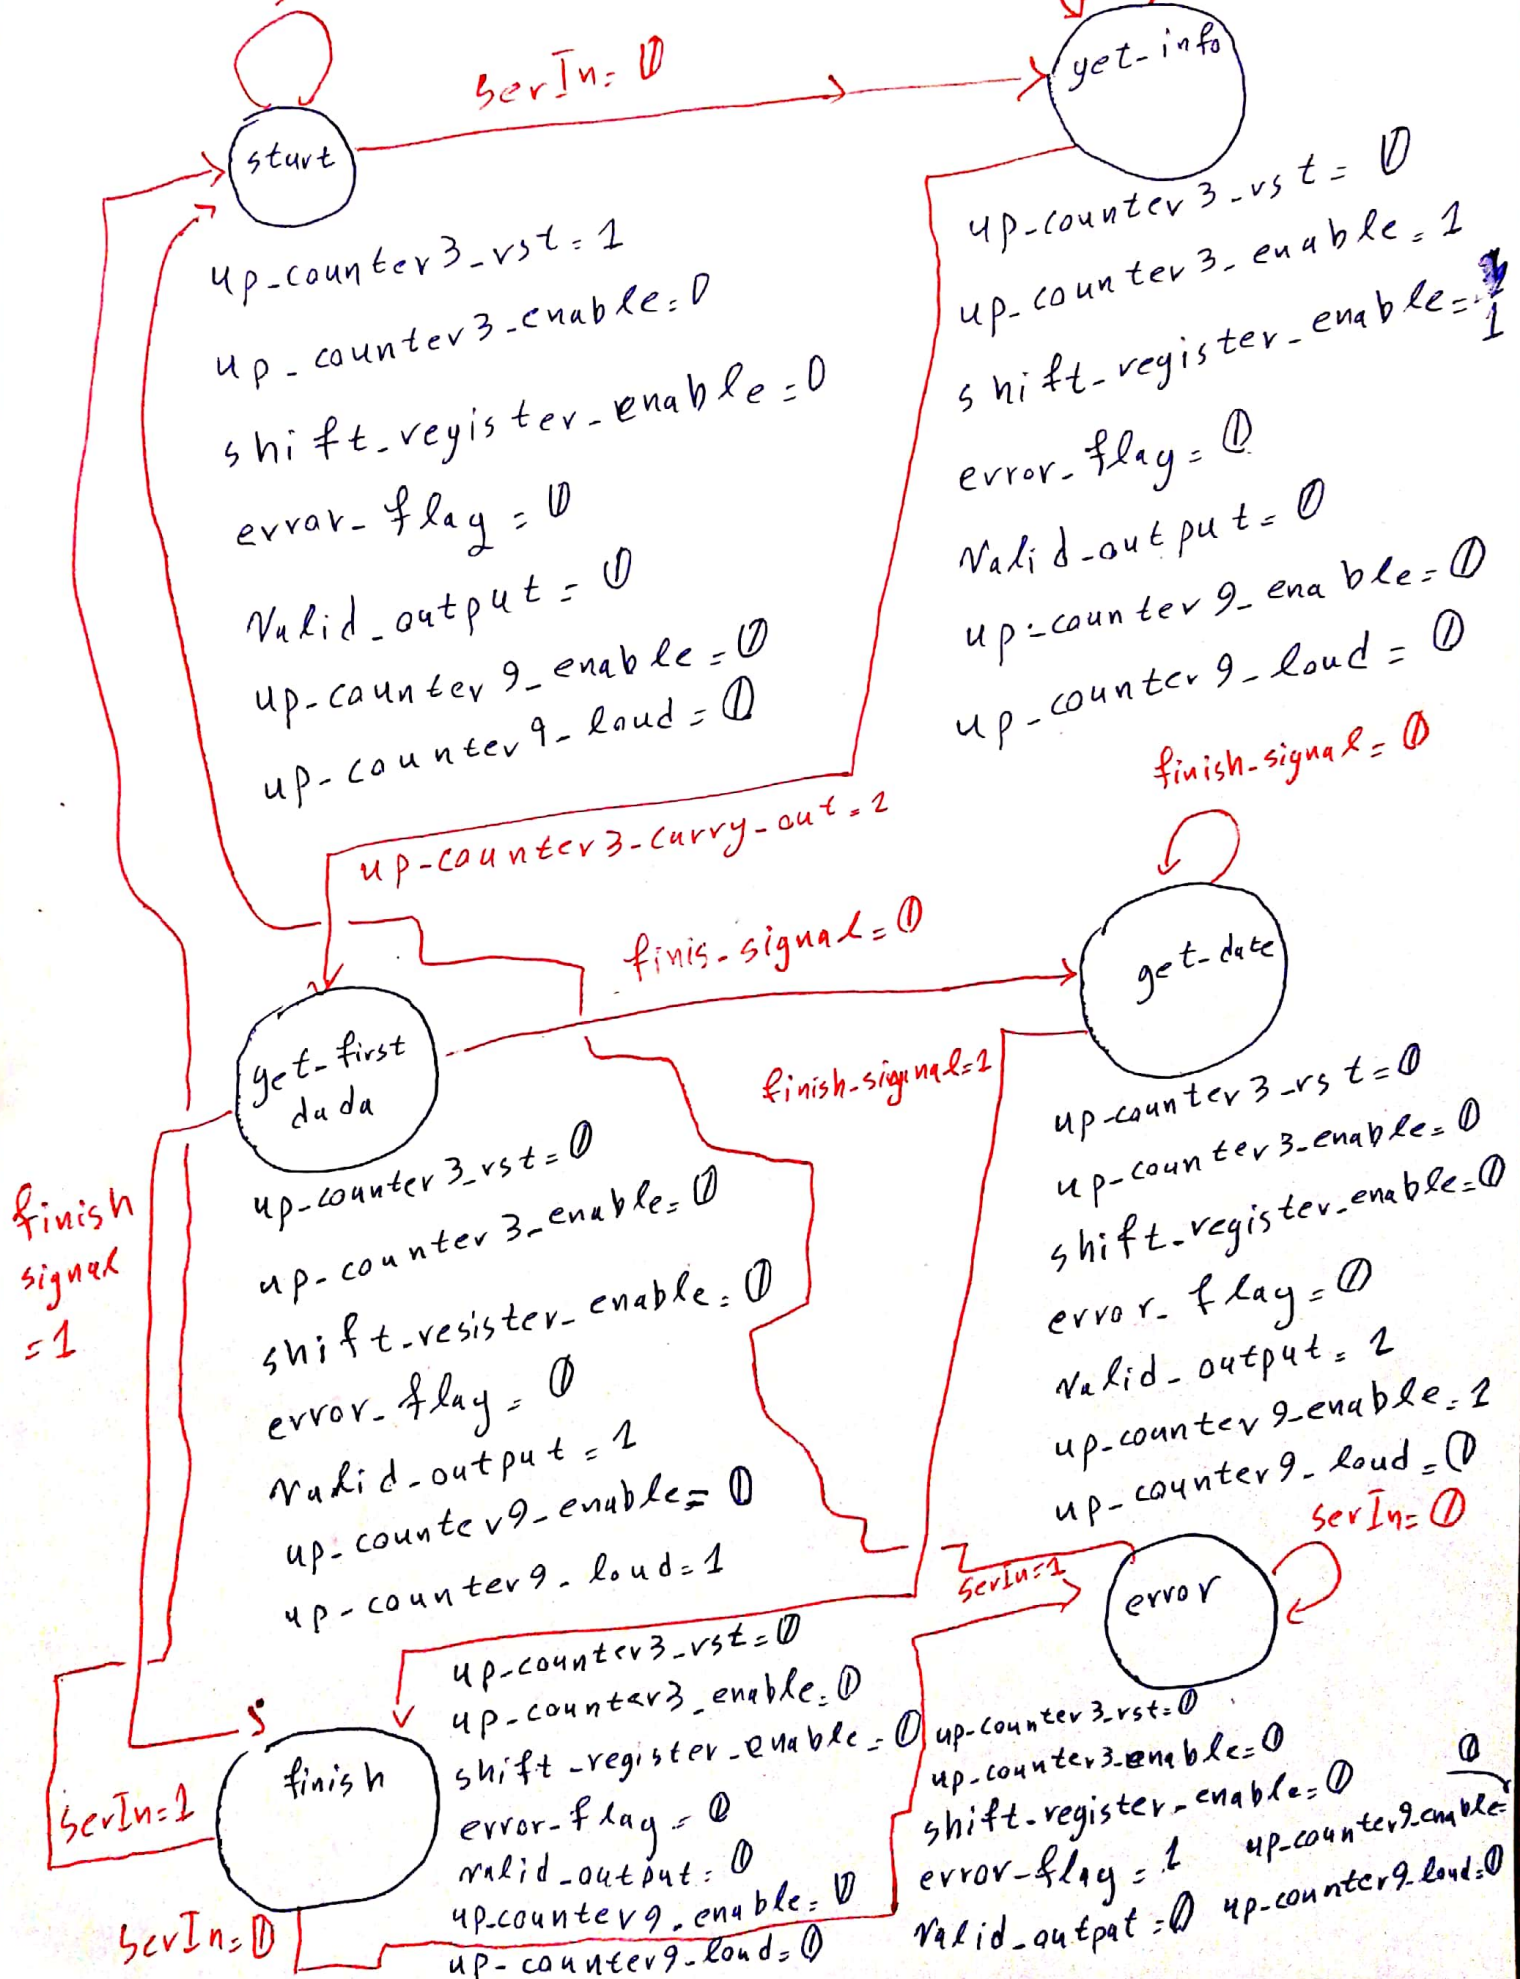 serIn=0
get-info
start
up-counter3-rst=1
up-counter3-enable=0
shift-register-enable=0
error-flag=0
Valid-output=0
up-counter9-enable=0
up-counter9-load=0
up-counter3-rst=0
up-counter3-enable=1
shift-register-enable=1
error-flag=0
Valid-output=0
up-counter9-enable=0
up-counter9-load=0
finish-signal=0
up-counter3-carry-out=1
finis-signal=0
get-date
get-first
dada
finish-signal=1
finish
signal
=1
up-counter3-rst=0
up-counter3-enable=0
shift-resister-enable=0
error-flag=0
Valid-output=1
up-counter9-enable=0
up-counter9-load=1
up-counter3-rst=0
up-counter3-enable=0
shift-register-enable=0
error-flag=0
Valid-output=1
up-counter9-enable=1
up-counter9-load=0
serIn=0
serIn=1
error
finish
serIn=1
serIn=0
up-counter3-rst=0
up-counter3-enable=0
shift-register-enable=0
error-flag=0
valid-output=0
up-counter9-enable=0
up-counter9-load=0
up-counter3-rst=0
up-counter3-enable=0
shift-register-enable=0
error-flag=1
Valid-output=0
up-counter9-enable=0
up-counter9-load=0